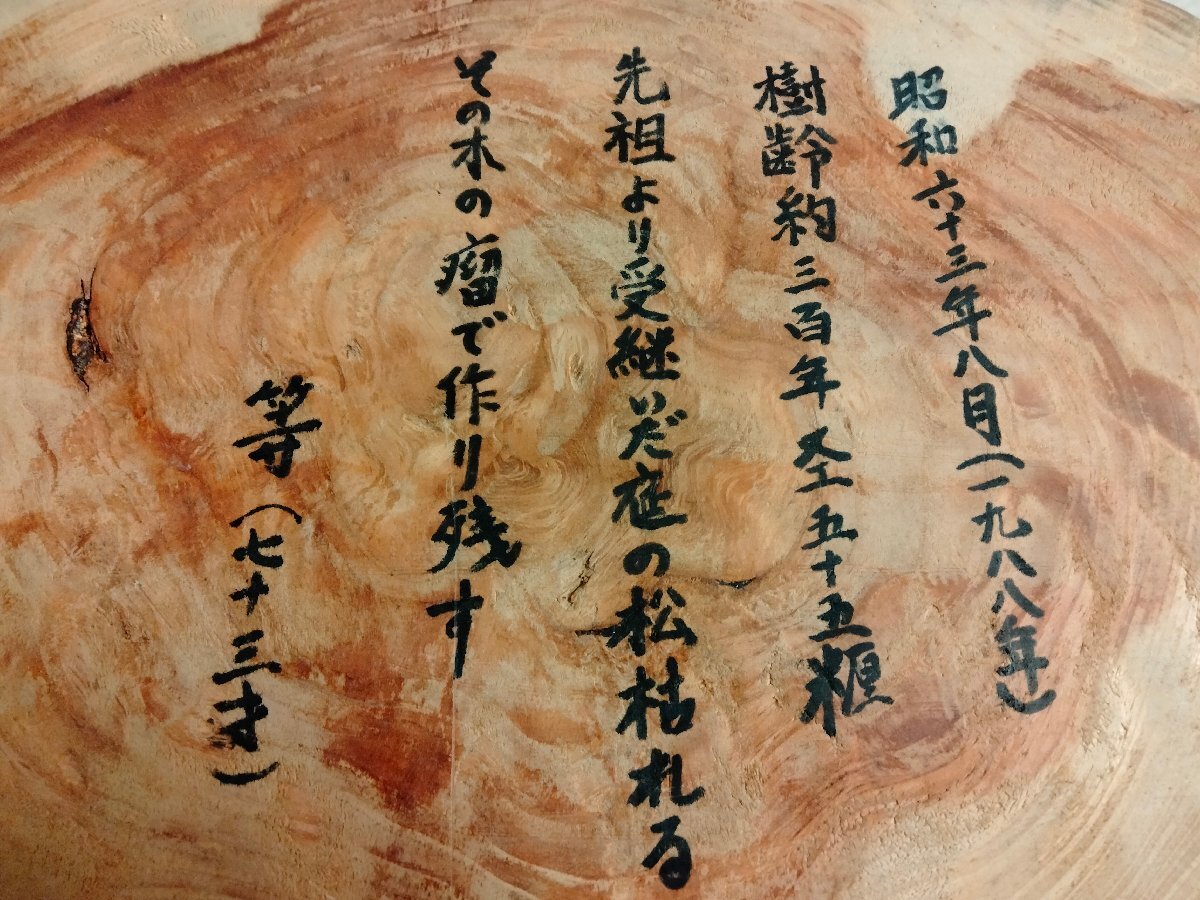 昭和六十三年八月(一九八八年)
樹齢約三百年 圣五十五糎
先祖より受継いだ庭の松枯れる
その木の瘤で作り残す
等(七十三才)